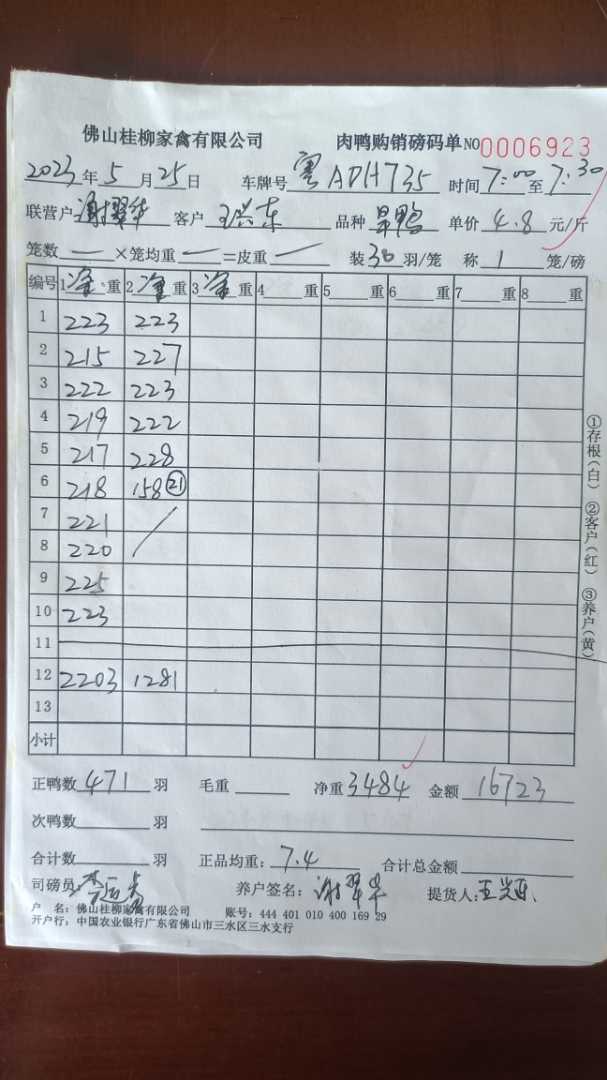 佛山桂柳家禽有限公司 肉鸭购销磅码单 NO 0006923
2023年5月25日 车牌号 粤ADH735 时间 7:00至7:30
联营户 谢翠华 客户 王兴东 品种 旱鸭 单价 4.8 元/斤
笼数 — ×笼均重 — =皮重 — 装30羽/笼 称1笼/磅
编号 1净重 2净重 3净重 4重 5重 6重 7重 8重
1 223 223
2 215 227
3 222 223
4 219 222
5 217 228
6 218 158 ㉑
7 221
8 220
9 225
10 223
11
12 2203 1281
13
小计
正鸭数 471 羽 毛重 净重 3484 金额 16723
次鸭数 羽
合计数 羽 正品均重: 7.4 合计总金额
司磅员: 养户签名: 谢翠华 提货人: 王兴东
户 名: 佛山桂柳家禽有限公司 账号: 444 401 010 400 169 29
开户行: 中国农业银行广东省佛山市三水区三水支行
①存根(白) ②客户(红) ③养户(黄)